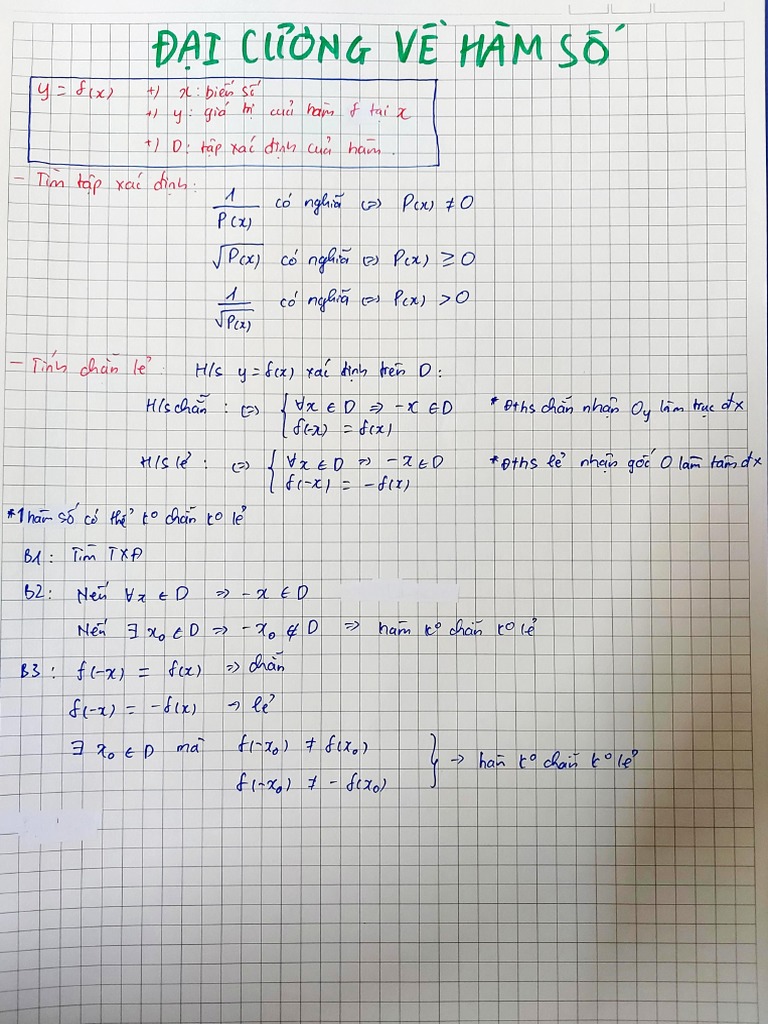 ĐẠI CƯƠNG VỀ HÀM SỐ
y = f(x) +) x: biến số
+) y: giá trị của hàm f tại x
+) D: tập xác định của hàm.
- Tìm tập xác định:
1/P(x) có nghĩa <=> P(x) ≠ 0
√P(x) có nghĩa <=> P(x) ≥ 0
1/√P(x) có nghĩa <=> P(x) > 0
- Tính chẵn lẻ: H/s y = f(x) xác định trên D:
H/s chẵn: <=> { ∀x ∈ D => -x ∈ D * Đths chẵn nhận Oy làm trục đx
f(-x) = f(x)
H/s lẻ: <=> { ∀x ∈ D => -x ∈ D * Đths lẻ nhận gốc O làm tâm đx
f(-x) = -f(x)
*1 hàm số có thể k° chẵn k° lẻ
B1: Tìm TXĐ
B2: Nếu ∀x ∈ D => -x ∈ D
Nếu ∃ x₀ ∈ D => -x₀ ∉ D => hàm k° chẵn k° lẻ
B3: f(-x) = f(x) => chẵn
f(-x) = -f(x) → lẻ
∃ x₀ ∈ D mà f(-x₀) ≠ f(x₀)
f(-x₀) ≠ -f(x₀) } → hàm k° chẵn k° lẻ